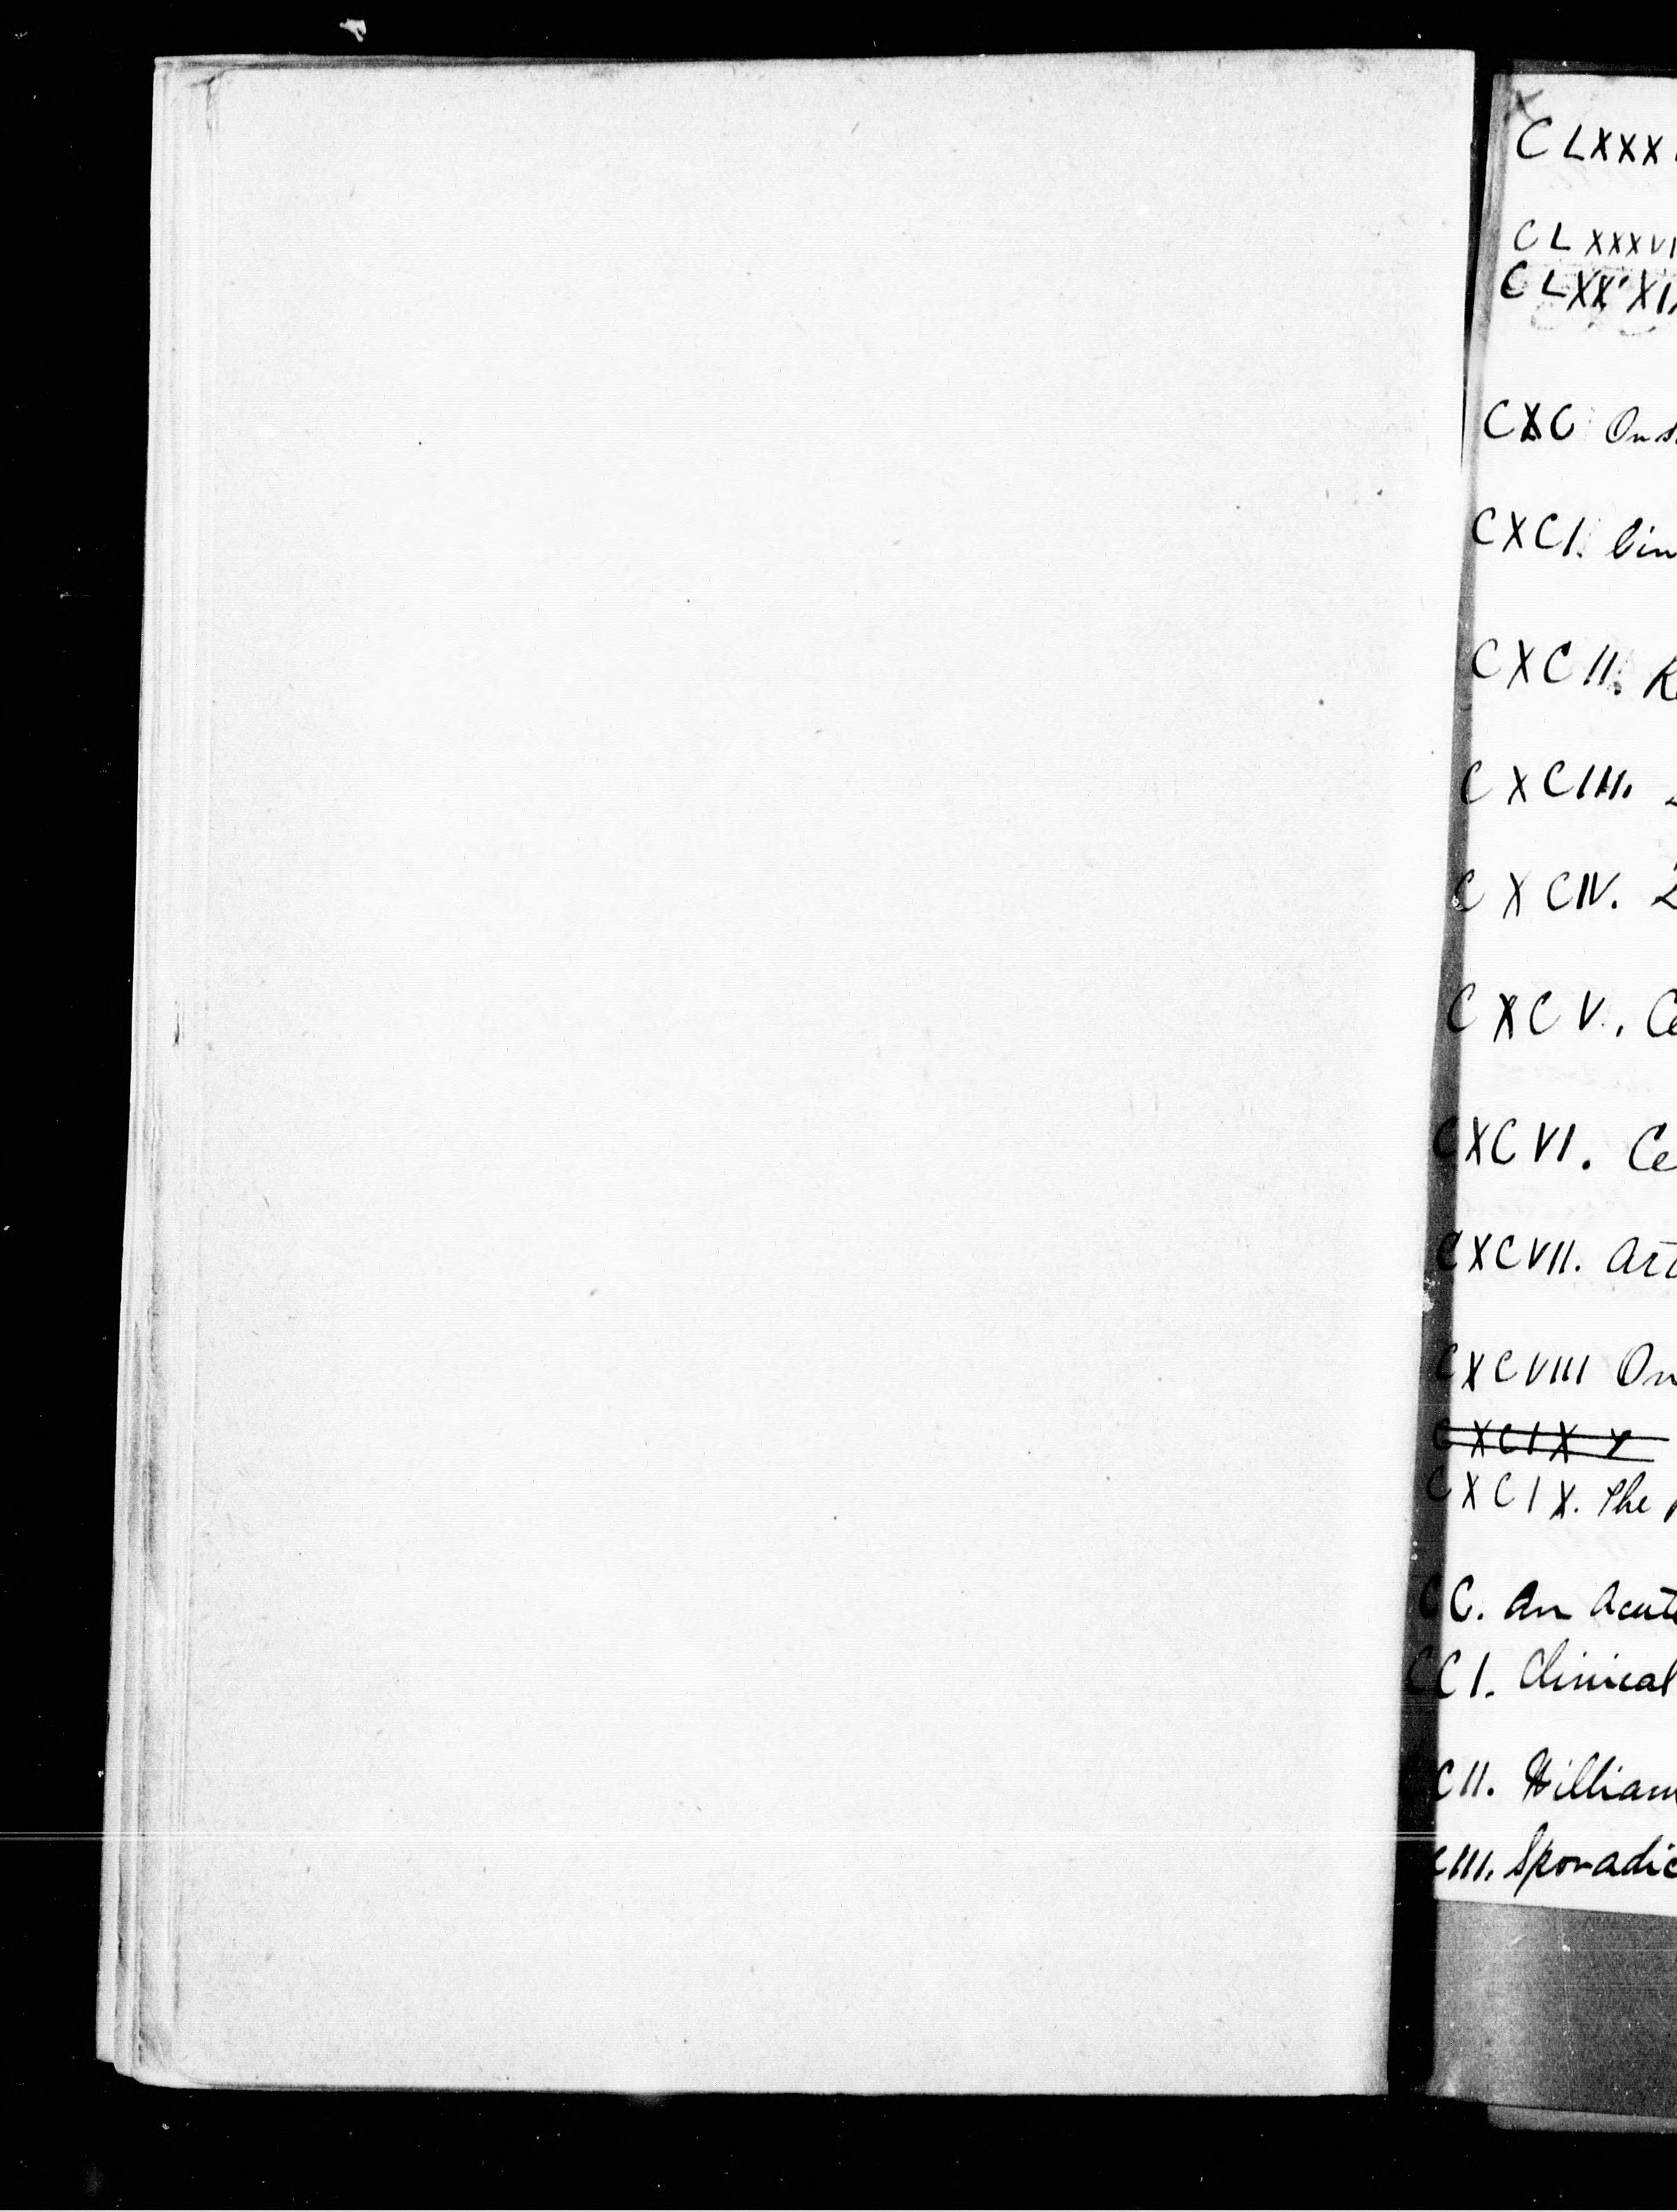 CLXXX
CLXXXVI
CLXXXIX
CXC On s
CXCI. Cin
CXCII. R
CXCIII.
CXCIV.
CXCV. Ce
CXCVI. Ce
CXCVII. Art
CXCVIII On
CXCIX
CXCIX. The
CC. An Acute
CCI. Clinical
CII. William
CIII. Sporadic